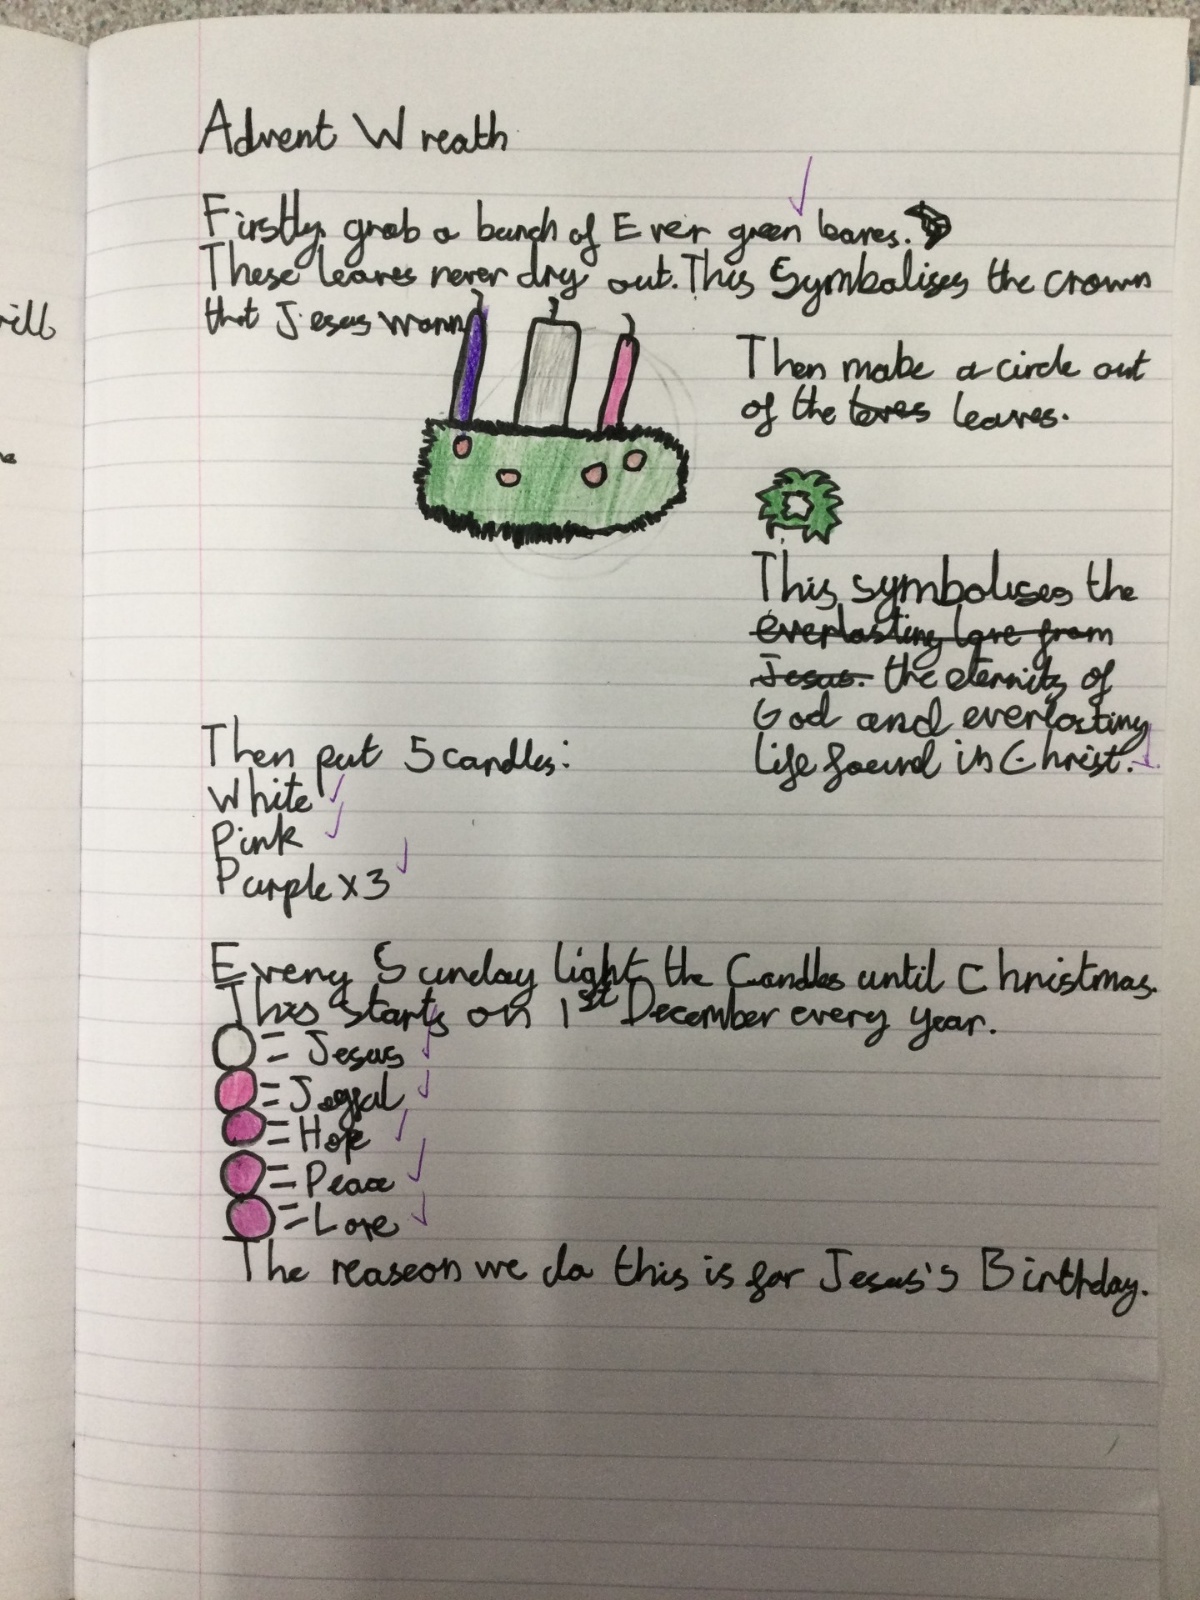 rill
Advent Wreath
Firstly grab a bunch of Ever green leaves.
These leaves never dry out. This Symbolises the crown
that Jesus worn
Then make a circle out
of the leves leaves.
This symbolises the
everlasting love from
Jesus. the eternity of
God and everlasting
life found in Christ.
Then put 5 candles:
White
Pink
Purple x3
Every Sunday light the Candles until Christmas.
This starts on 1st December every year.
= Jesus
= Joyful
= Hope
= Peace
= Love
The reaseon we do this is for Jesus's Birthday.